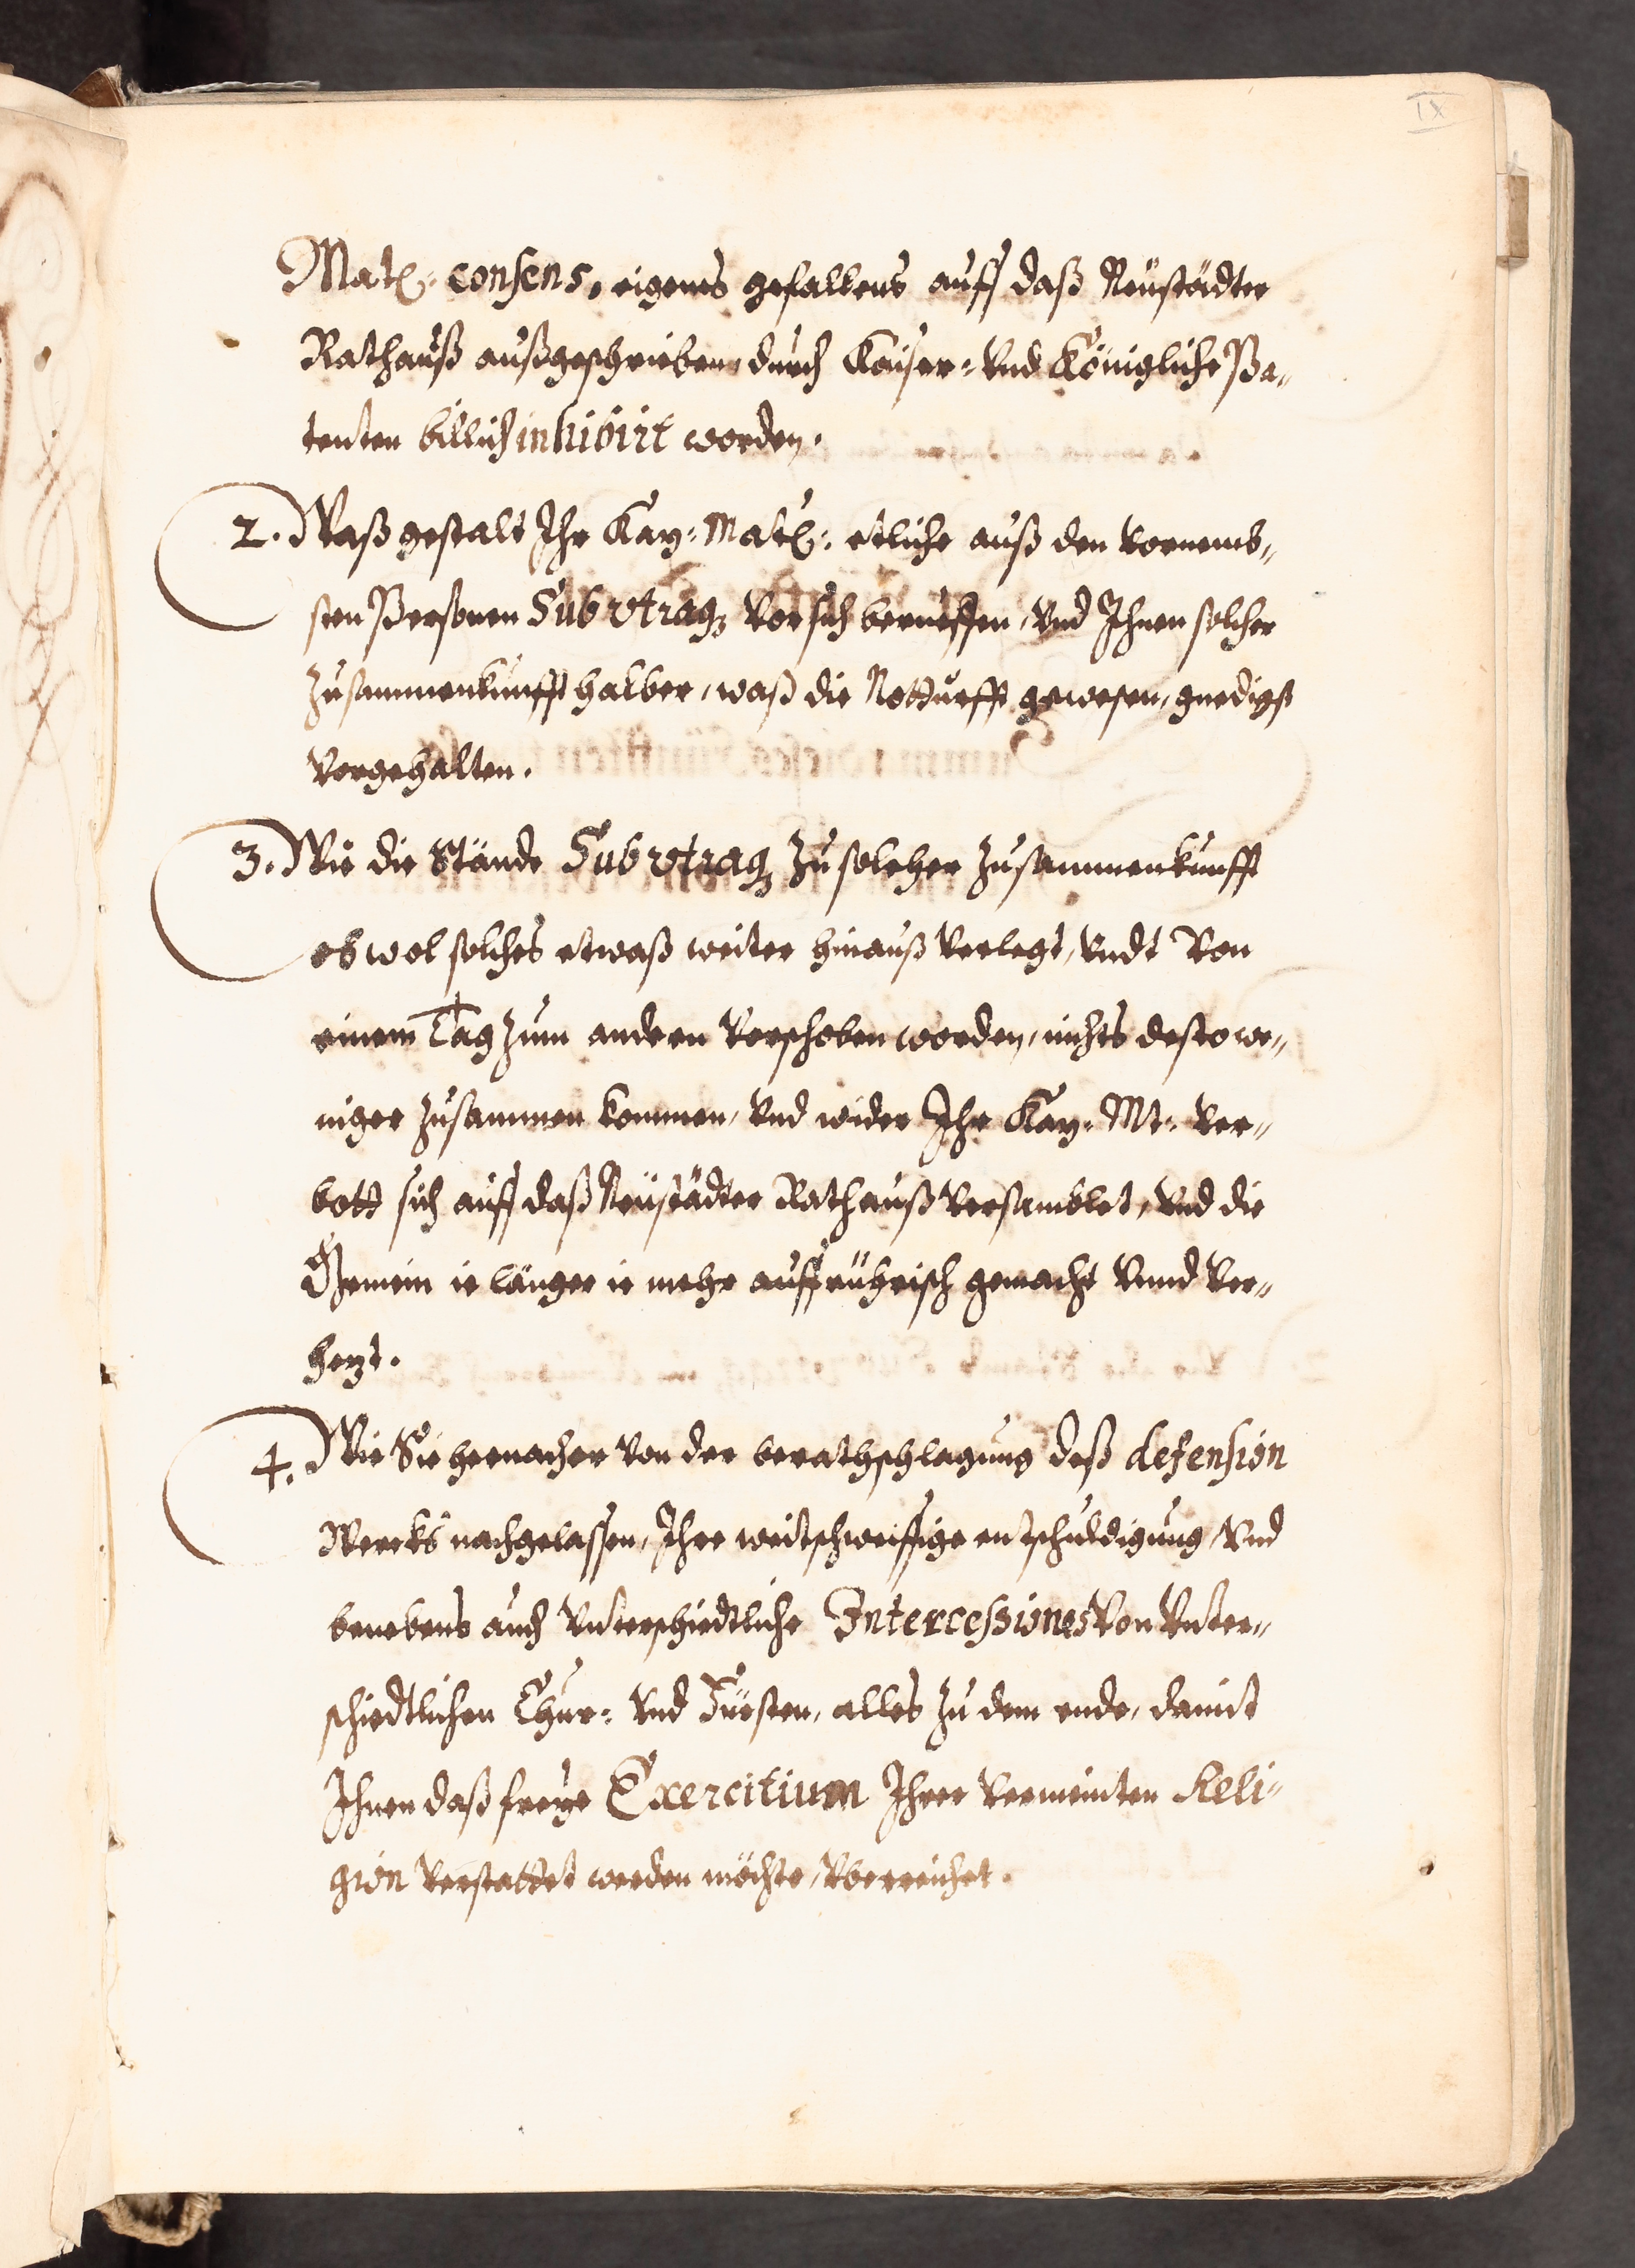 IX
Matt: consens, eigenes gefallens auff daß Neüstädter
Rathauß außgeschrieben, durch Kaiser: Vnd Königliche Pa„
tenten billich inhibirt worden.
2. Waß gestalt Ihr Kay: Matt: etliche auß den Vornemb„
sten Personen Sub vtraq3 Vor sich beruffen, Vnd Ihnen solcher
Zusammenkunfft halber, waß die Notturfft gewesen, gnedigst
Vorgehalten.
3. Wie die Stände Sub vtraq3 Zu solcher Zusammenkunfft
ob wol solches etwaß weiter hinauß Verlegt, Vndt Von
einem Tag Zum andern Verschoben worden, nichts destowe„
niger Zusammen kommen, Vnd wider Ihr Kay: Mt: Ver„
bott sich auff daß Neüstädter Rathauß Versamblet, Vnd die
Gemein ie länger ie mehr auffrührisch gemacht Vnnd Ver„
hezt.
4. Wie Sie hernacher Von der berathschlagung deß defension
Wercks nachgelassen, Ihre weitschweiffige entschuldigung, Vnd
benebens auch Vnterschiedtliche Intercessiones Von Vnter„
schiedtlichen Chur: Vnd Fürsten, alles Zu dem ende, damit
Ihnen daß freye Exercitium Ihrer Vermeinten Reli„
gion Verstattet werden möchte, Vberreichet.